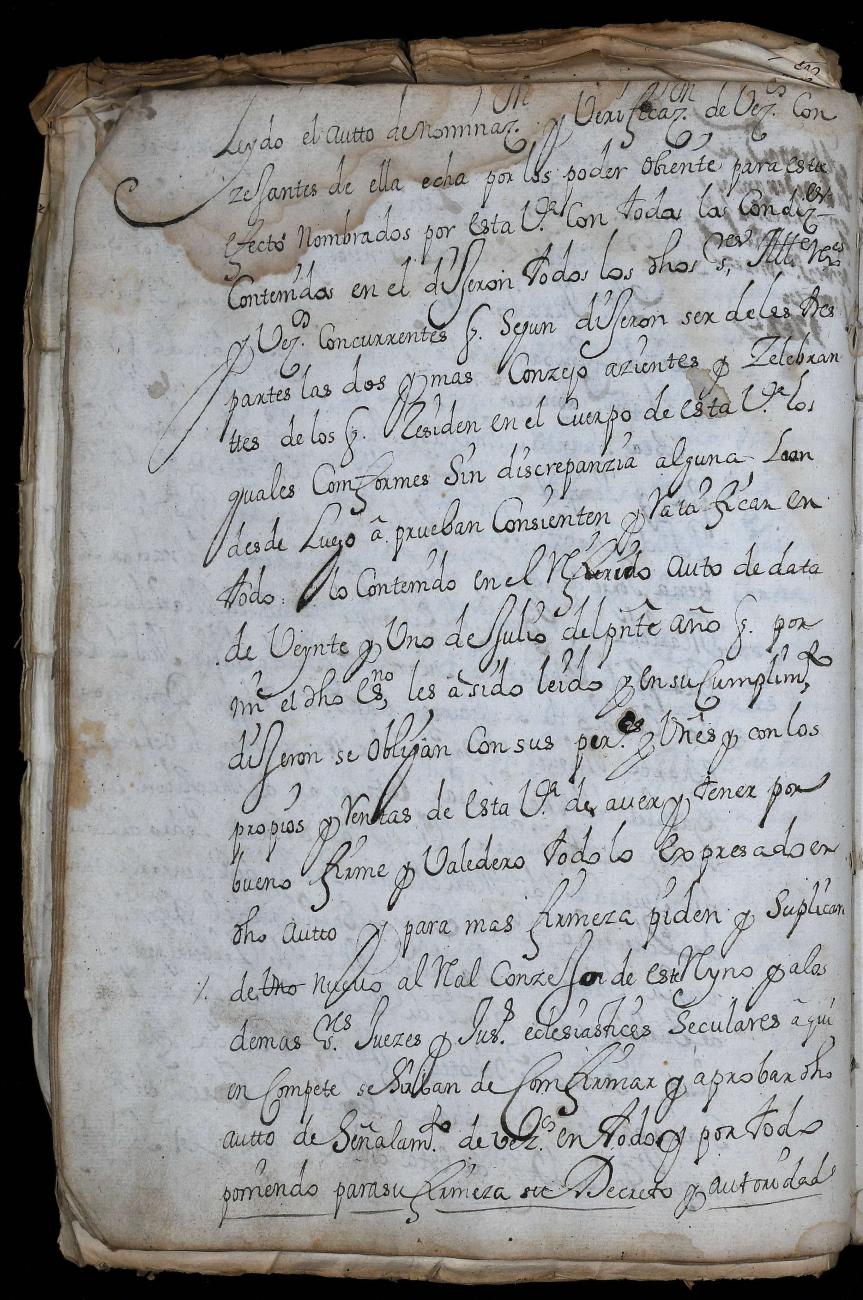 Leydo el autto de nominaz.on y Verificaz.on de Vez.s Con
zessantes de ella echa por los poder obiente para este
efecto Nombrados por esta V.a Con todas las Condiz.es
Contenidos en el disseron todos los dhos
y Vez.s Concurrentes q. Segun disseron ser de les tres
partes las dos y mas Conzejo azientes y Zelebran
ttes de los q. Residen en el Cuerpo de esta V.a los
quales Comformes Sin discrepanzia alguna Loan
desde Luego aprueban Consienten y Ratifican en
todo lo Contenido en el Referido auto de data
de Veynte y Uno de Julio del pnte año q. por
mi el dho es.no les a sido leido y en su Cumplim.to
disseron se oblijan Con sus per.as y Vnes y con los
propios y Rentas de esta V.a de aver y tener por
bueno firme y Valedero todo lo expresado en
dho autto y para mas firmeza piden y Suplican
de nuevo al Ral Conzejo de este Ryno y alos
demas s.res Juezes y Jus.s eclesiastices Seculares a qui
en Compete se sirban de Comfirmar y aprobar dho
autto de Señalam.to de vez.s en todo y por todo
poniendo para su firmeza su Decreto y autoridad